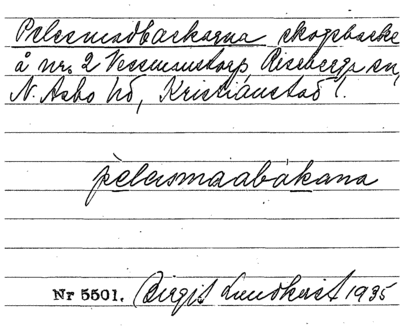 Pelesmadbackarna skogsbacke
å nr. 2 Vessmanstorp, Riseberga sn,
N. Åsbo hd, Kristianstad l.
pèlesmaabákana
Nr 5501. Birgit Lundkvist 1935